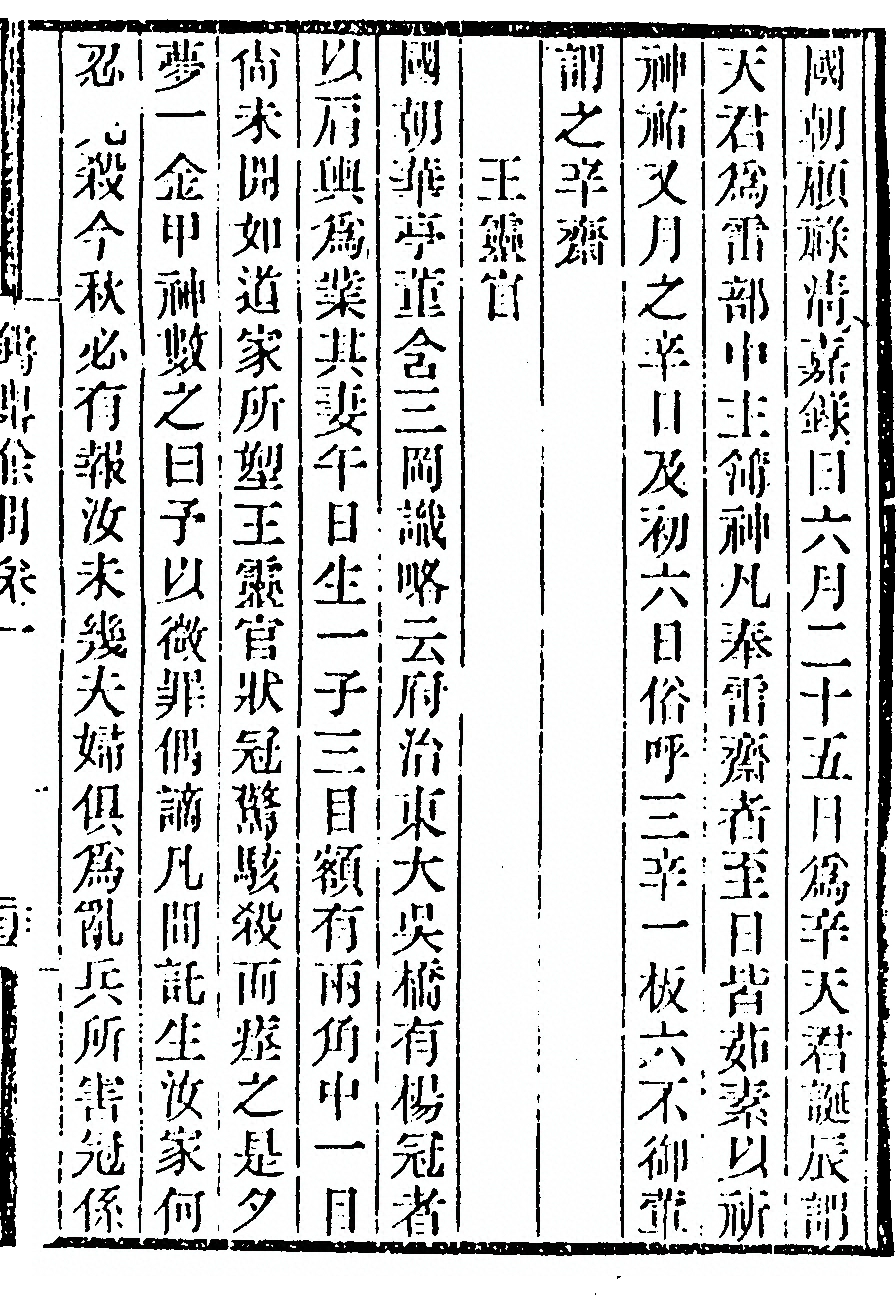 國朝顧祿淸嘉錄曰六月二十五日爲辛天君誕辰謂
天君爲雷部中主簿神凡奉雷齋者至日皆茹素以祈
神祐又月之辛日及初六日俗呼三辛一板六不御葷
謂之辛齋
王靈官
國朝華亭董含三岡識略云府治東大吳橋有楊冠者
以肩輿爲業其妻午日生一子三目額有兩角中一目
尙未開如道家所塑王靈官狀冠驚駭殺而瘞之是夕
夢一金甲神數之曰予以微罪偶謫凡間託生汝家何
忍 殺今秋必有報汝未幾夫婦俱爲亂兵所害冠係
鑄鼎餘聞卷一